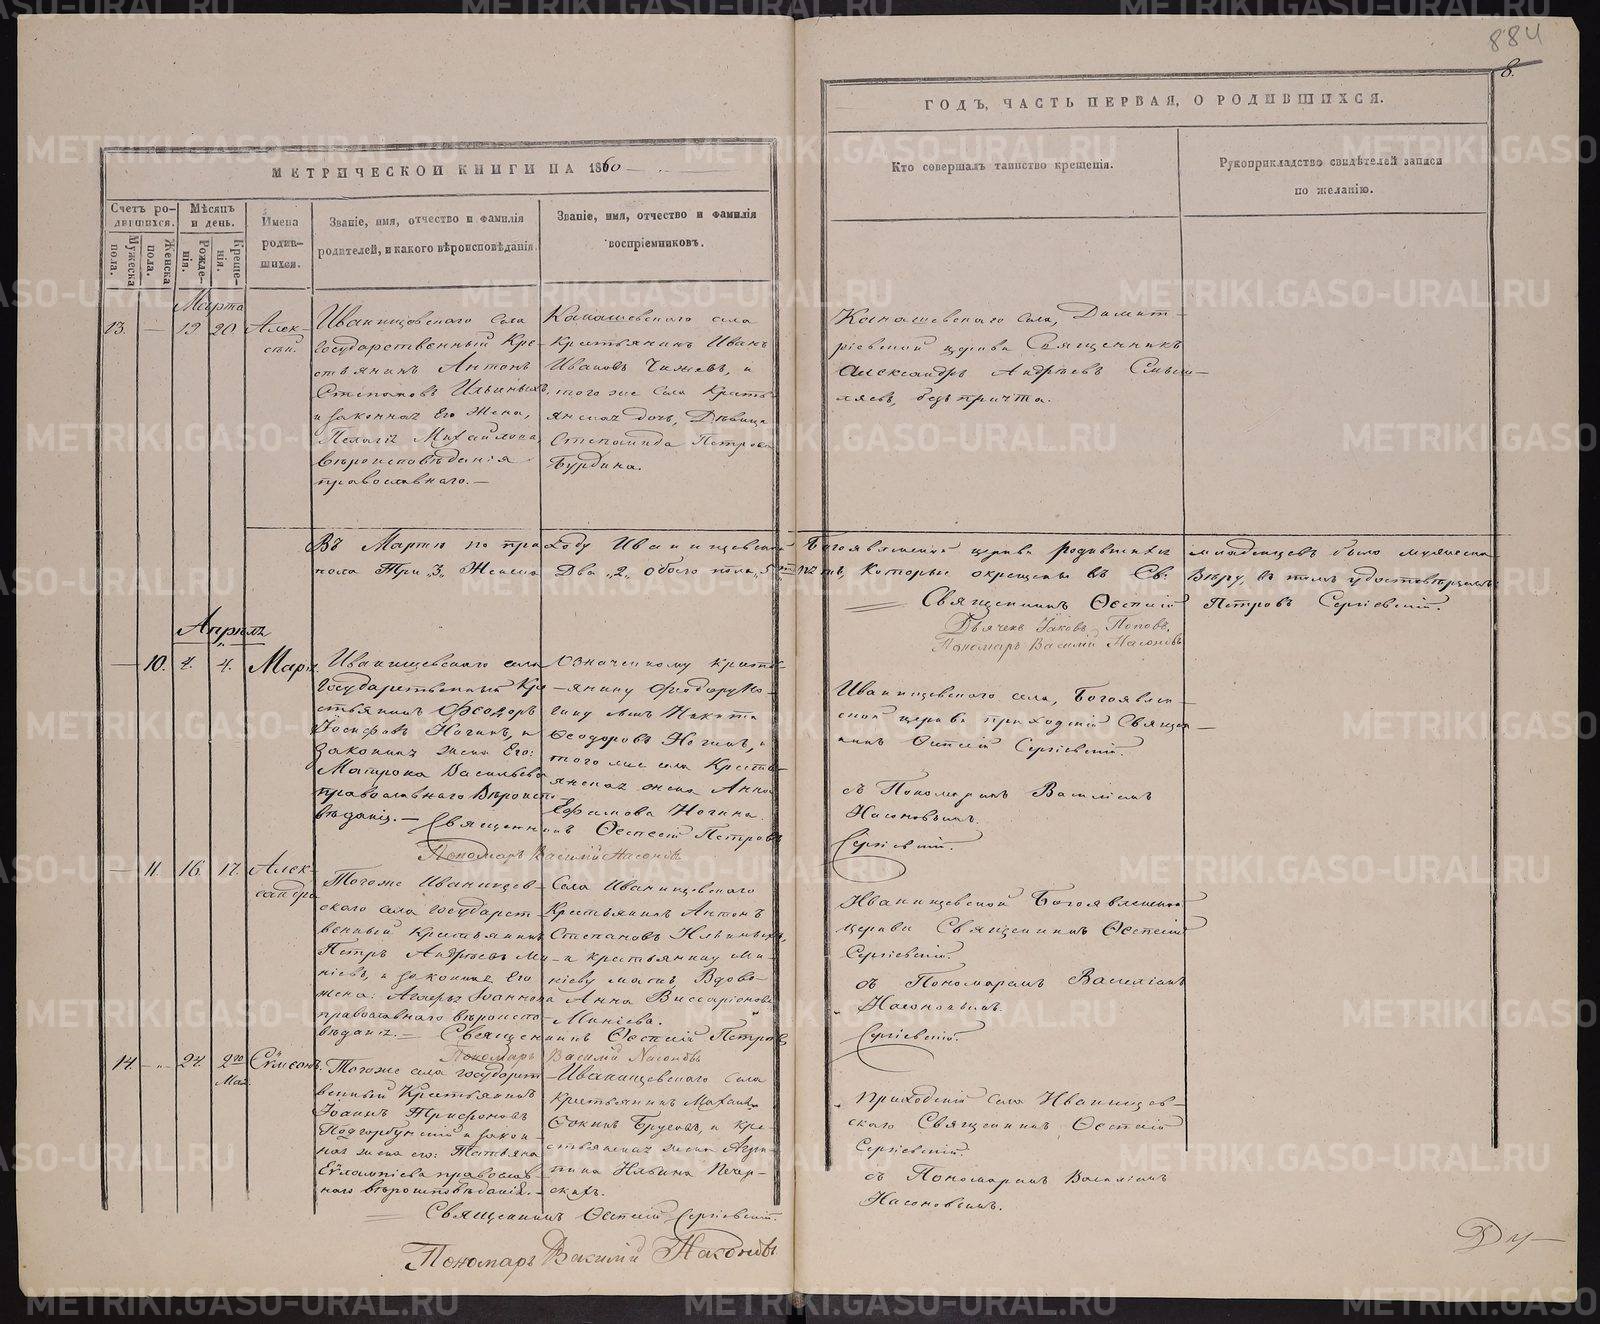 884
8.
МЕТРИЧЕСКОЙ КНИГИ НА 1860
ГОДЪ, ЧАСТЬ ПЕРВАЯ, О РОДИВШИХСЯ.
Счетъ ро-
дившихся.
Мужеска
пола.
Женска
пола.
Мѣсяцъ
и день.
Рожде-
нія.
Креще-
нія.
Имена
родив-
шихся.
Званіе, имя, отчество и фамилія
родителей, и какого вѣроисповѣданія.
Званіе, имя, отчество и фамилія
воспріемниковъ.
Кто совершалъ таинство крещенія.
Рукоприкладство свидѣтелей записи
по желанію.
Марта
13. — 19 20. Алек-
сѣй.
Иванищевскаго села
государственный Кре-
стьянинъ Антонъ
Степановъ Ильиныхъ,
и законная его жена,
Пелагія Михайлова,
вѣроисповѣданія
православнаго.—
Канашевскаго села
крестьянинъ Иванъ
Ивановъ Чижевъ, и
того же села кресть-
янская дочь, Дѣвица
Степанида Петрова
Бурдина.
Канашевскаго села, Димит-
ріевской церкви Священникъ
Александръ Андреевъ Смыш-
ляевъ, безъ причта.
Въ Мартѣ по приходу Иванищевской Богоявленской церкви родившихся младенцевъ было мужеска
пола Три „3„ Женска Два „2„ обоего пола „5 пять, которые окрещены въ Св: Вѣру, въ томъ удостовѣряемъ:
Священникъ Ѳеспесій Петровъ Сергіевскій.
Дьячекъ Іаковъ Поповъ.
Пономарь Василій Насоновъ
Апрѣля
— 10. 2. 4. Марія.
Иванищевскаго села
Государственный Кре-
стьянинъ Ѳеодоръ
Іосифовъ Ногинъ, и
законная жена его:
Матрона Васильева
православнаго вѣроиспо-
вѣданія.—
Означенному кресть-
янину Ѳеодору Но-
гину сынъ Никита
Ѳеодоровъ Ногинъ, и
того же села Кресть-
янская жена Анна
Ефимова Ногина.
Священникъ Ѳеспесій Петровъ
Пономарь Василій Насоновъ
Иванищевскаго села, Богоявлен-
ской церкви приходскій Священ-
никъ Ѳеспесій Сергіевскій.
съ Пономаремъ Василіемъ
Насоновымъ.
Сергіевскій.
— 11. 16. 17. Алек-
сандра
Тогоже Иванищев-
скаго села государст-
венный Крестьянинъ
Петръ Андреевъ Ми-
нѣевъ, и законная его
жена: Агафья Іоаннова
православнаго вѣроиспо-
вѣданія.—
Села Иванищевскаго
Крестьянинъ Антонъ
Степановъ Ильиныхъ,
и крестьянину Ми-
нѣеву мать, Вдова
Анна Виссаріонова
Минѣева.
Священникъ Ѳеспесій Петровъ
Пономарь Василій Насоновъ
Иванищевской Богоявленской
церкви Священникъ Ѳеспесій
Сергіевскій.
съ Пономаремъ Василіемъ
Насоновымъ.
Сергіевскій.
14. — 24. 2го
Мая. Сѵмеонъ.
Тогоже села государст-
венный Крестьянинъ
Іоаннъ Трифоновъ
Подгорбунскій и закон-
ная жена его: Татьяна
Евлампіева православ-
наго вѣроисповѣданія.—
Иванищевскаго села
крестьянинъ Михаилъ
Ѳокинъ Брусовъ, и кре-
стьянская жена Агри-
пина Ильина Печер-
скихъ.
Священникъ Ѳеспесій Сергіевскій.
Пономарь Василій Насоновъ
Приходскій села Иванищев-
скаго Священникъ Ѳеспесій
Сергіевскій.
съ Пономаремъ Василіемъ
Насоновымъ.
METRIKI.GASO-URAL.RU